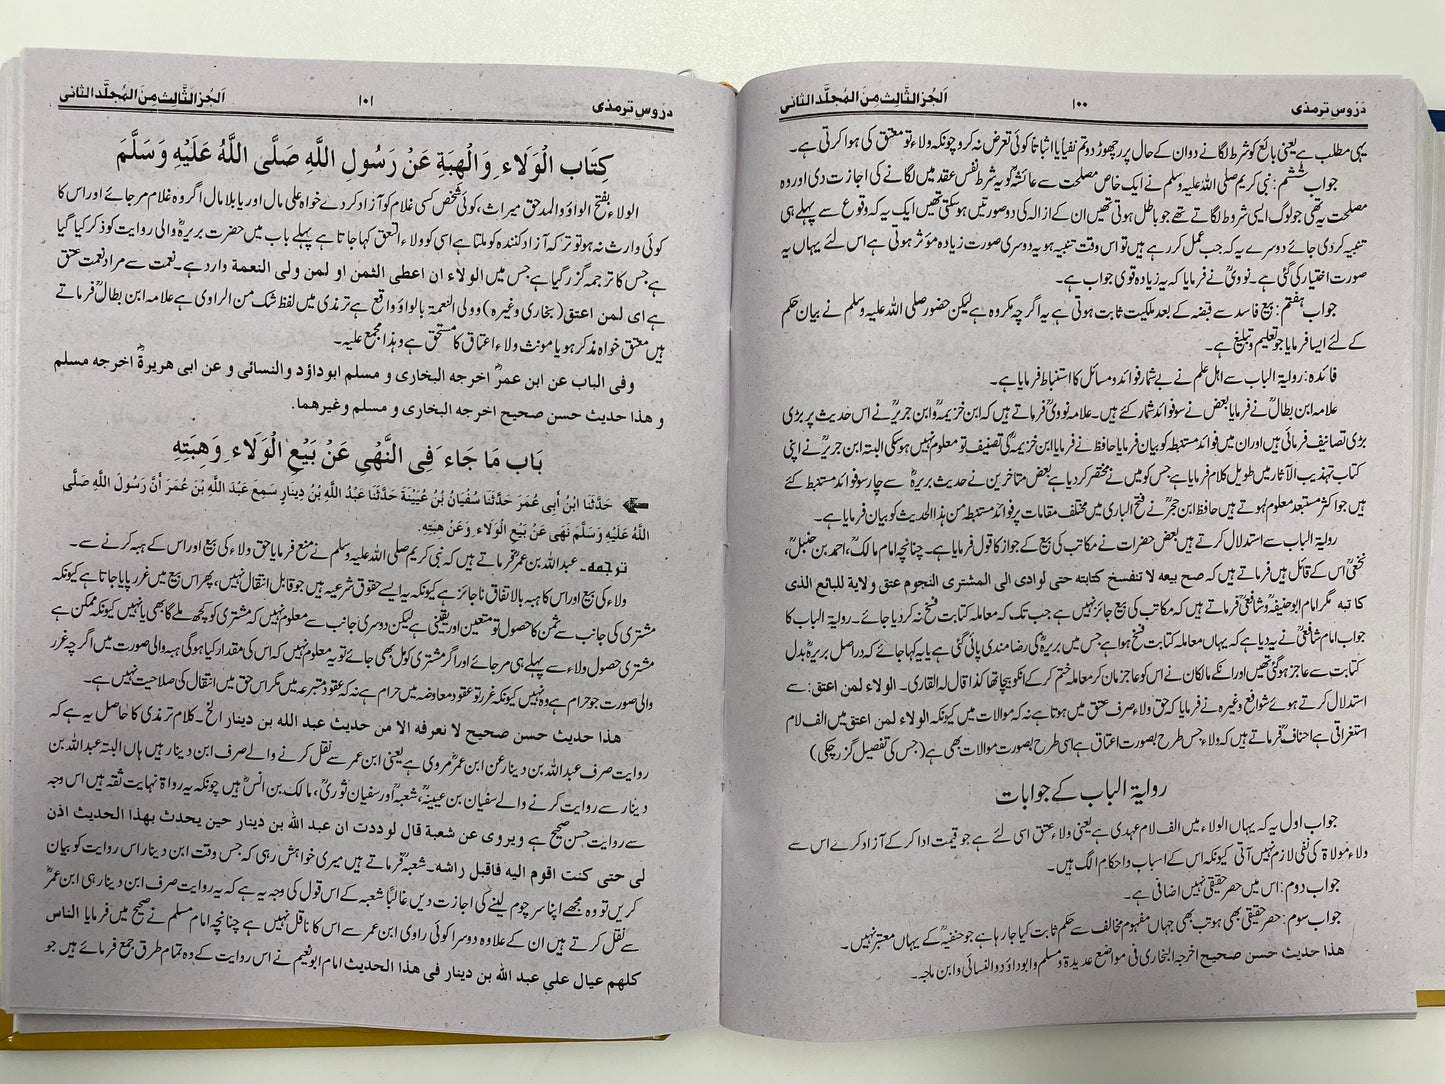 دروس ترمذی ۱۰۰ اَلجُزالثَّالِث مِنَ المُجلَّد الثانی
یہی مطلب ہے یعنی بائع کو شرط لگانے دو ان کے حال پر چھوڑ دو تم نفیاً یا اثباتاً کوئی تعرض نہ کرو چونکہ ولاء تو معتق کی ہوا کرتی ہے۔
جواب ششم: نبی کریم صلی اللہ علیہ وسلم نے ایک خاص مصلحت سے عائشہؓ کو یہ شرط نفس عقد میں لگانے کی اجازت دی اور وہ
مصلحت یہ تھی جو لوگ ایسی شروط لگاتے تھے جو باطل ہوتی تھیں ان کے ازالہ کی دو صورتیں ہوسکتی تھیں ایک یہ کہ وقوع سے پہلے ہی
تنبیہ کردی جائے دوسرے یہ کہ جب عمل کر رہے ہیں تو اس وقت تنبیہ ہو یہ دوسری صورت زیادہ مؤثر ہوتی ہے اس لئے یہاں یہ
صورت اختیار کی گئی ہے۔ نوویؒ نے فرمایا کہ یہ زیادہ قوی جواب ہے۔
جواب ہفتم: بیع فاسد سے قبضہ کے بعد ملکیت ثابت ہوتی ہے یہ اگرچہ مکروہ ہے لیکن حضور صلی اللہ علیہ وسلم نے بیان حکم
کے لئے ایسا فرمایا جو تعلیم و تبلیغ ہے۔
فائدہ: روایۃ الباب سے اہل علم نے بے شمار فوائد و مسائل کا استنباط فرمایا ہے۔
علامہ ابن بطالؒ نے فرمایا بعض نے سو فوائد شمار کئے ہیں۔ علامہ نوویؒ فرماتے ہیں کہ ابن خزیمہؒ و ابن جریرؒ نے اس حدیث پر بڑی
بڑی تصانیف فرمائی ہیں اور ان میں فوائد مستنبطہ کو بیان فرمایا حافظ نے فرمایا ابن خزیمہؒ کی تصنیف تو معلوم نہیں ہوسکی البتہ ابن جریرؒ نے اپنی
کتاب تہذیب الآثار میں طویل کلام فرمایا ہے جس کو میں نے مختصر کر دیا ہے بعض متأخرین نے حدیث بریرہؓ سے چار سو فوائد مستنبط کئے
ہیں جو اکثر مستبعد معلوم ہوتے ہیں حافظ ابن حجرؒ نے فتح الباری میں مختلف مقامات پر فوائد مستنبطہ من ہذا الحدیث کو بیان فرمایا ہے۔
روایۃ الباب سے استدلال کرتے ہیں بعض حضرات نے مکاتب کی بیع کے جواز کا قول فرمایا ہے۔ چنانچہ امام مالکؒ، احمد بن حنبلؒ،
نخعیؒ اس کے قائل ہیں فرماتے ہیں کہ صح بیعه لا تنفسخ کتابته حتی لو ادی الی المشتری النجوم عتق ولایة للبائع الذی
کاتبه مگر امام ابوحنیفہؒ و شافعیؒ فرماتے ہیں کہ مکاتب کی بیع جائز نہیں ہے جب تک کہ معاملہ کتابت فسخ نہ کر دیا جائے۔ روایۃ الباب کا
جواب امام شافعیؒ نے یہ دیا ہے کہ یہاں معاملہ کتابت فسخ ہوا ہے جس میں بریرہؓ کی رضامندی پائی گئی ہے یا یہ کہا جائے کہ دراصل بریرہؓ بدل
کتابت سے عاجز ہوگئی تھیں اور انکے مالکان نے اس کو عاجز مان کر معاملہ ختم کر کے انکو بیچا تھا کذا قال لہ القاری۔ الولاء لمن اعتق: سے
استدلال کرتے ہوئے شوافع وغیرہ نے فرمایا کہ حق ولاء صرف عتق میں ہوتا ہے نہ کہ موالات میں کیونکہ الولاء لمن اعتق میں الف لام
استغراقی ہے احنافؒ فرماتے ہیں کہ ولاء جس طرح بصورت اعتاق ہے اسی طرح بصورت موالات بھی ہے (جس کی تفصیل گزر چکی)
روایۃ الباب کے جوابات
جواب اول یہ کہ یہاں الولاء میں الف لام عہدی ہے یعنی ولاء عتق اسی لئے ہے جو قیمت ادا کر کے آزاد کرے اس سے
ولاء موالاۃ کی نفی لازم نہیں آتی کیونکہ اس کے اسباب و احکام الگ ہیں۔
جواب دوم: اس میں حصر حقیقی نہیں اضافی ہے۔
جواب سوم: حصر حقیقی بھی ہو تب بھی جہاں مفہوم مخالف سے حکم ثابت کیا جا رہا ہے جو حنفیہؒ کے یہاں معتبر نہیں۔
هذا حدیث حسن صحیح اخرجہ البخاری فی مواضع عدیدة و مسلم و ابوداؤد والنسائی و ابن ماجہ۔
دروس ترمذی ۱۰۱ اَلجُزالثَّالِث مِنَ المُجلَّد الثانی
كِتَاب الْوَلَاء ِ وَالْهِبَةِ عَنْ رَسُولِ اللَّهِ صَلَّى اللَّهُ عَلَيْهِ وَسَلَّمَ
الولاء بفتح الواؤ و المد حق میراث، کوئی شخص کسی غلام کو آزاد کر دے خواہ علی مال اور یا بلا مال اگر وہ غلام مر جائے اور اس کا
کوئی وارث نہ ہو تو ترکہ آزاد کنندہ کو ملتا ہے اسی کو ولاء العتق کہا جاتا ہے پہلے باب میں حضرت بریرہؓ والی روایت کو ذکر کیا گیا
ہے جس کا ترجمہ گزر گیا ہے جس میں الولاء ان اعطی الثمن او لمن ولی النعمة وارد ہے۔ نعمت سے مراد نعمت عتق
ہے ای لمن اعتق (بخاری وغیرہ) و ولی النعمة بالواؤ واقع ہے ترمذی میں لفظ شک من الراوی ہے علامہ ابن بطالؒ فرماتے
ہیں معتق خواہ مذکر ہو یا مونث ولاء اعتاق کا مستحق ہے و ہذا مجمع علیہ۔
وفی الباب عن ابن عمرؓ اخرجه البخاری و مسلم ابوداؤد والنسائی و عن ابی هریرةؓ اخرجه مسلم
و هذا حدیث حسن صحیح اخرجه البخاری و مسلم وغیرهما.
بَاب مَا جَاء َ فِي النَّهْيِ عَنْ بَيْعِ الْوَلَاء ِ وَهِبَتِهِ
حَدَّثَنَا ابْنُ أَبِي عُمَرَ حَدَّثَنَا سُفْيَانُ بْنُ عُيَيْنَةَ حَدَّثَنَا عَبْدُ اللَّهِ بْنُ دِينَارٍ سَمِعَ عَبْدَ اللَّهِ بْنَ عُمَرَ أَنَّ رَسُولَ اللَّهِ صَلَّى
اللَّهُ عَلَيْهِ وَسَلَّمَ نَهَى عَنْ بَيْعِ الْوَلَاء ِ وَعَنْ هِبَتِهِ.
ترجمہ۔ عبداللہ بن عمرؓ فرماتے ہیں کہ نبی کریم صلی اللہ علیہ وسلم نے منع فرمایا حق ولاء کی بیع اور اس کے ہبہ کرنے سے۔
ولاء کی بیع اور اس کا ہبہ بالاتفاق ناجائز ہے کیونکہ یہ ایسے حقوق شرعیہ ہیں جو قابل انتقال نہیں، پھر اس بیع میں غرر پایا جاتا ہے کیونکہ
مشتری کی جانب سے ثمن کا حصول تو متعین اور یقینی ہے لیکن دوسری جانب سے معلوم نہیں کہ مشتری کو کچھ ملے گا بھی یا نہیں کیونکہ ممکن ہے
مشتری حصول ولاء سے پہلے ہی مر جائے اور اگر مشتری کو مل بھی جائے تو یہ معلوم نہیں کہ اس کی مقدار کیا ہوگی ہبہ والی صورت میں اگرچہ غرر
والی صورت جو حرام ہے وہ نہیں کیونکہ غرر تو عقود معاوضہ میں حرام ہے نہ کہ عقود متبرعہ میں مگر اس حق میں انتقال کی صلاحیت نہیں ہے۔
هذا حدیث حسن صحیح لا نعرفه الا من حدیث عبد الله بن دینار الخ۔ کلام ترمذی کا حاصل یہ ہے کہ
روایت صرف عبداللہ بن دینار عن ابن عمرؓ مروی ہے یعنی ابن عمر سے نقل کرنے والے صرف ابن دینار ہیں ہاں البتہ عبداللہ بن
دینار سے روایت کرنے والے سفیان بن عیینہؒ، شعبہؒ اور سفیان ثوریؒ، مالک بن انسؒ ہیں چونکہ یہ رواۃ نہایت ثقہ ہیں اس وجہ
سے روایت حسن صحیح ہے ویروی عن شعبة قال لوددت ان عبد الله بن دینار حین یحدث بهذا الحدیث اذن
لی حتی کنت اقوم الیه فاقبل راسه۔ شعبہؒ فرماتے ہیں میری خواہش رہی کہ جس وقت ابن دینار اس روایت کو بیان
کریں تو وہ مجھے اپنا سر چوم لینے کی اجازت دیں غالباً شعبہ کے اس قول کی وجہ یہ ہے کہ یہ روایت صرف ابن دینار ہی ابن عمرؓ
سے نقل کرتے ہیں ان کے علاوہ دوسرا کوئی راوی ابن عمر سے اس کا ناقل نہیں ہے چنانچہ امام مسلم نے صحیح میں فرمایا الناس
کلهم عیال علی عبد الله بن دینار فی هذا الحدیث امام ابونعیم نے اس روایت کے وہ تمام طرق جمع فرمائے ہیں جو